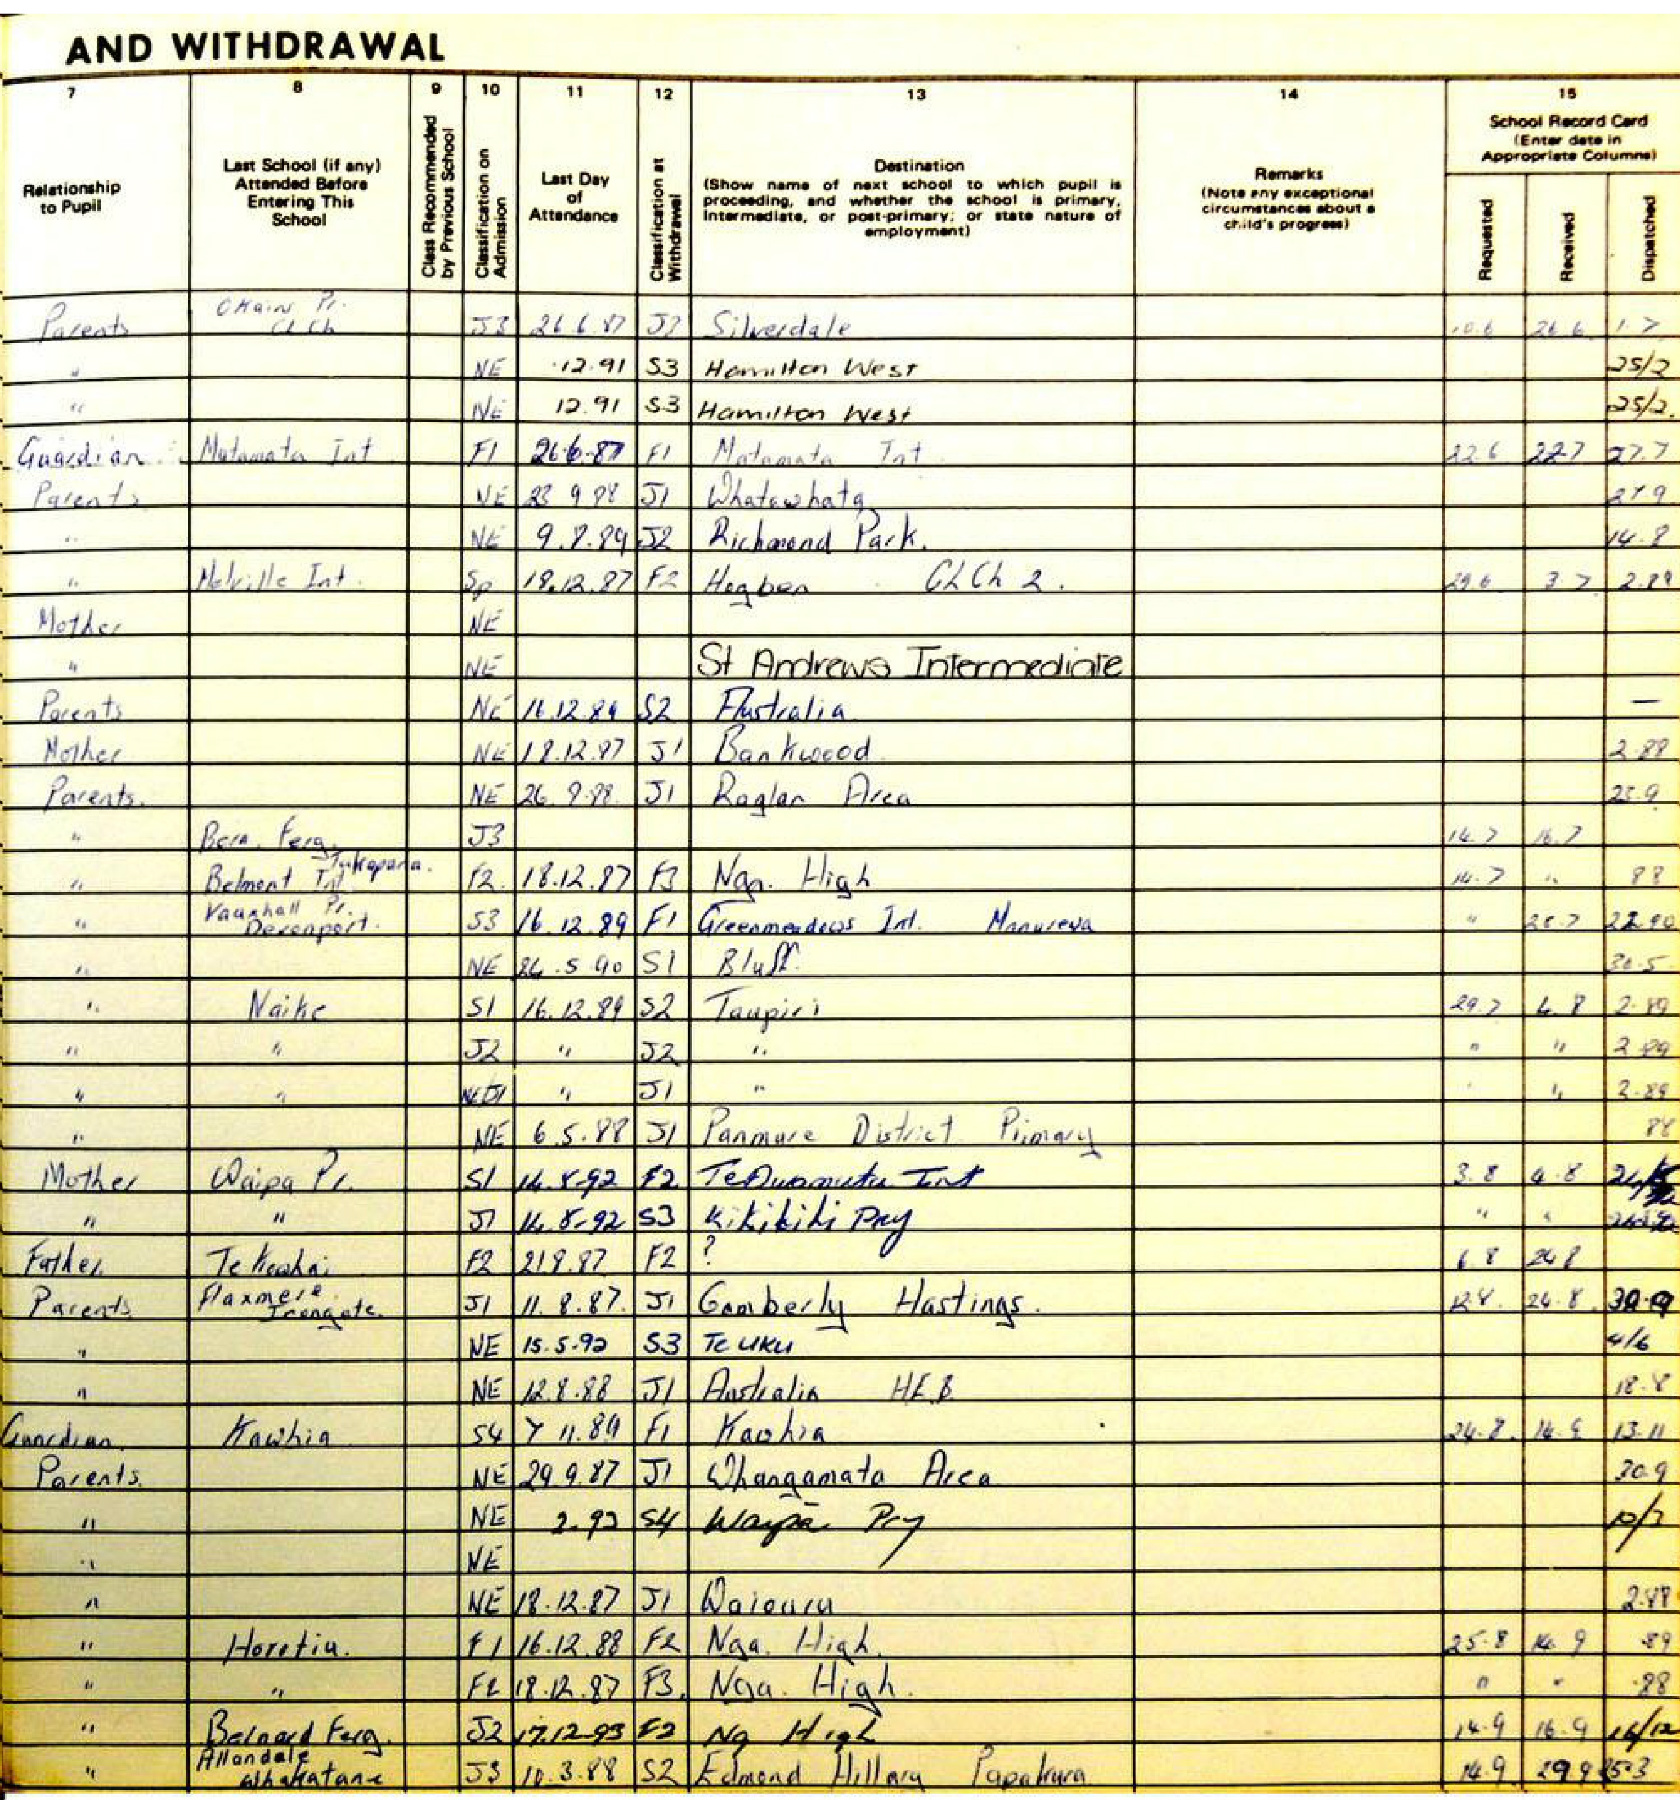 AND WITHDRAWAL
7 8 9 10 11 12 13 14 15
Relationship to Pupil
Last School (if any) Attended Before Entering This School
Class Recommended by Previous School
Classification on Admission
Last Day of Attendance
Classification at Withdrawal
Destination
(Show name of next school to which pupil is proceeding, and whether the school is primary, intermediate, or post-primary; or state nature of employment)
Remarks
(Note any exceptional circumstances about a child's progress)
School Record Card
(Enter date in Appropriate Columns)
Requested Received Dispatched
Parents Pr. Ch Ch J3 26.6.87 Silverdale 26.6 1.7
" NE 12.91 S3 Hamilton West 25/2
" NE 12.91 S3 Hamilton West 25/2.
Guardian Matamata Int F1 26.6.87 F1 Matamata Int. 22.6 22.7 27.7
Parents NE 23 9 88 J1 Whatawhata 27.9
" NE 9.8.89 J2 Richmond Park. 14.8
" Melville Int. Sp 18.12.87 F2 Hogben Ch Ch 2. 29.6 3 7 2.88
Mother NE
" NE St Andrews Intermediate
Parents NE 16.12.89 S2 Australia —
Mother NE 18.12.87 J1 Bankwood 2.88
Parents. NE 26.8.88 J1 Raglan Area 23.9
" Bern. Ferg. J3 14.7 16.7
" Belmont Int. F2. 18.12.87 F3 Nga. High 14.7 " 88
" Vauxhall Pr. Devonport. S3 16.12.89 F1 Greenmeadows Int. Manurewa " 22.90
" NE 24.5.90 S1 Bluff. 30.5
" Naike S1 16.12.89 S2 Taupiri 29.7 4.8 2.89
" " J2 " J2 " " " 2.89
" " NE J1 " J1 " " 2.89
" NE 6.5.88 J1 Panmure District Primary 88
Mother Waipa Pr. S1 14.8-92 F2 Te Awamutu Int 3.8 4.8
" " J1 14.8-92 S3 Kihikihi Pry " "
Father Te Kowhai F2 21 8.87 F2 ? 6.8 24 8
Parents Flaxmere Irongate. J1 11.8.87. J1 Hastings. 12.8. 24.8. 30.9
" NE 15.5.92 S3 Te Uku 4/6
" NE 12.8.88 J1 Australia 18.8
Guardian Kawhia S4 7 11.89 F1 Kawhia 24.8. 14.9 13.11
Parents. NE 29.9.87 J1 Whangamata Area 30.9
" NE 2.92 S4 Waipa Pry 10/3
" NE
" NE 18.12.87 J1 Waiouru 2.88
" Horotiu. F1 16.12.88 F2 Nga. High. 25.8 14.9 .89
" " F2 18.12.87 F3. Nga. High. " " .88
" Bernard Ferg. J2 17.12-93 F2 Ng High 14.9 16.9 16/12
" Allandale Whakatane J3 10.3.88 S2 Edmond Hillary Papakura 14.9. 29 9